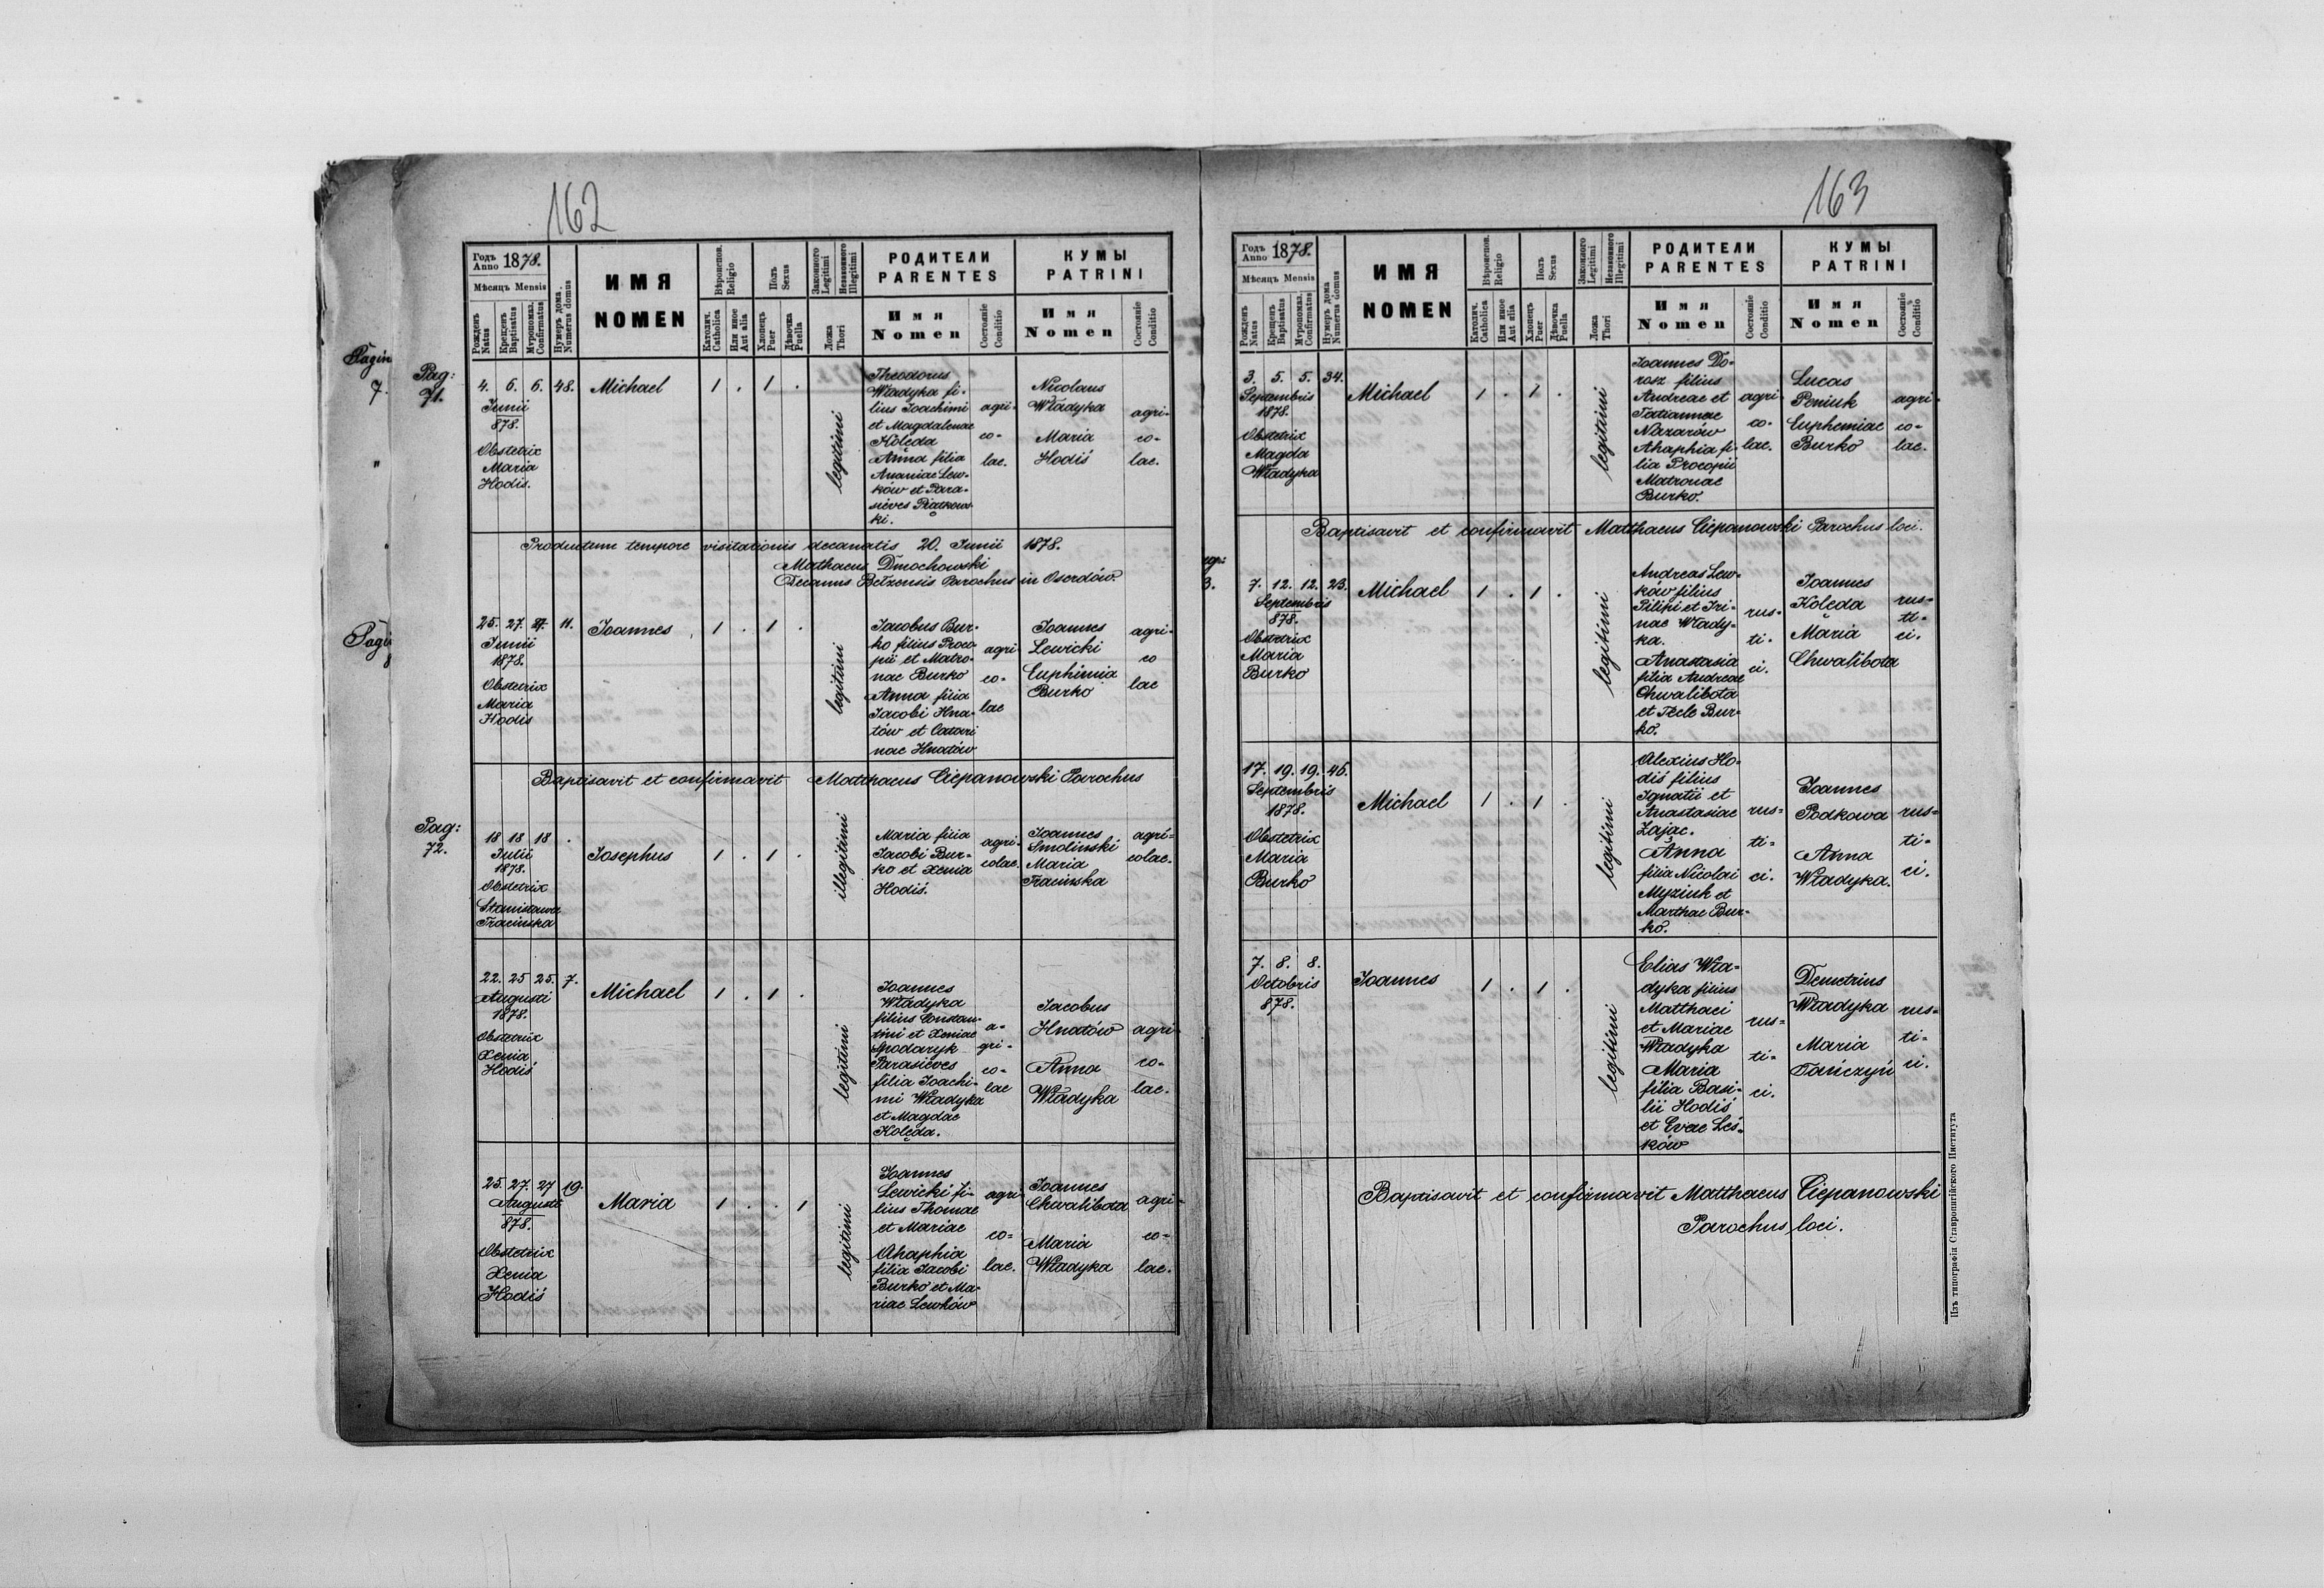 162
Годъ
Anno 1878.
Мѣсяцъ Mensis
Рожденъ
Natus
Крещенъ
Baptisatus
Мѵропомаз.
Confirmatus
Нумеръ дома
Numerus domus
ИМЯ
NOMEN
Вѣроиспов.
Religio
Католич.
Catholica
Или иное
Aut alia
Полъ
Sexus
Хлопецъ
Puer
Дѣвочка
Puella
Законного
Legitimi
Незаконного
Illegitimi
Ложа
Thori
РОДИТЕЛИ
PARENTES
Имя
Nomen
Состояніе
Conditio
КУМЫ
PATRINI
Имя
Nomen
Состояніе
Conditio
Pagin
7.
Pag:
71.
4. 6. 6. 48.
Junii
878.
Obstetrix
Maria
Hodis.
Michael
1 . 1 .
legitimi
Theodorus
Władyka fi-
lius Joachimi
et Magdalenae
Kolęda
Anna filia
Ananiae Lew-
ków et Para-
sieves Piątkows-
ki.
agri-
co-
lac.
Nicolaus
Władyka
Maria
Hodiś
agri-
co-
lac.
Productum tempore visitationis decanatis 20. Junii 1878.
Mathaeus Dmochowski
Decanus Bełzensis Parochus in Oserdów.
Pagi
8
25. 27. 27. 11.
Junii
1878.
Obstetrix
Maria
Hodis
Joannes
1 . 1 .
legitimi
Jacobus Bur-
ko filius Proco-
pii et Matro-
nae Burko
Anna filia
Jacobi Hna-
tów et Catari
nae Hnatów
agri
co-
lac
Joannes
Lewicki
Euphimia
Burko
agri-
co
lac
Baptisavit et confirmavit Matthaeus Ciepanowski Parochus
Pag:
72.
18 18 18 .
Julii
1878.
Obstetrix
Stanisława
Tracinska
Josephus
1 . 1 .
illegitimi
Maria filia
Jacobi Bur-
ko et Xenia
Hodiś.
agri-
colac.
Joannes
Smolinski
Maria
Tracinska
agri=
colac.
22. 25 25. 7.
Augusti
1878.
Obstetrix
Xenia
Hodiś
Michael
1 . 1 .
legitimi
Joannes
Władyka
filius Constan-
tini et Xeniae
Parasieves
filia Joachi-
mi Władyka
et Magdae
Kolęda.
a-
gri-
co-
lac
Jacobus
Hnatów
Anna
Władyka
agri
co-
lac.
25. 27. 27 19.
Augusti
878.
Obstetrix
Xenia
Hodiś
Maria
1 . . 1
legitimi
Joannes
Lewicki fi-
lius Thomae
et Mariae
Ahaphia
filia Jacobi
Burko et Ma-
riae Lewków
agri
co=
lac.
Joannes
Chwalibota
Maria
Władyka
agri-
co-
lac.
163
Годъ
Anno 1878.
Мѣсяцъ Mensis
Рожденъ
Natus
Крещенъ
Baptisatus
Мѵропомаз.
Confirmatus
Нумеръ дома
Numerus domus
ИМЯ
NOMEN
Вѣроиспов.
Religio
Католич.
Catholica
Или иное
Aut alia
Полъ
Sexus
Хлопецъ
Puer
Дѣвочка
Puella
Законного
Legitimi
Незаконного
Illegitimi
Ложа
Thori
РОДИТЕЛИ
PARENTES
Имя
Nomen
Состояніе
Conditio
КУМЫ
PATRINI
Имя
Nomen
Состояніе
Conditio
3. 5. 5. 34.
Septembris
1878.
Obstetrix
Magda
Władyka
Michael
1 . 1 .
legitimi
Joannes Do-
rosz filius
Andreae et
Tatiannae
Nazarów
Ahaphia fi-
lia Procopii
Matronae
Burko.
agri-
co-
lac.
Lucas
Peniuk
Euphemiae
Burko
agri-
co-
lac.
Baptisavit et confirmavit Matthaeus Ciepanowski Parochus loci.
agi:
3.
7. 12. 12. 23.
Septembris
878.
Obstetrix
Maria
Burko
Michael
1 . 1 .
legitimi
Andreas Lew-
ków filius
Pilipi et Iri-
nae Włady-
ka.
Anastasia
filia Andreae
Chwalibota
et Tecle Bur-
ko.
rus-
ti-
ci.
Joannes
Kolęda
Maria
Chwalibota
rus-
ti-
ci.
17. 19. 19. 45.
Septembris
1878.
Obstetrix
Maria
Burko
Michael
1 . 1 .
legitimi
Alexius Ho-
diś filius
Ignatii et
Anastasiae
Zając.
Anna
filia Nicolai
Myziuk et
Marthae Bur-
ko.
rus=
ti-
ci.
Joannes
Podkowa
Anna
Władyka.
rus=
ti-
ci.
7. 8. 8.
Octobris
878.
Joannes
1 . 1 .
legitimi
Elias Wła-
dyka filius
Matthaei
et Mariae
Władyka
Maria
filia Basi-
lii Hodiś
et Evae Leś-
ków
rus=
ti=
ci.
Demetrius
Władyka
Maria
Tańczyń
rus=
ti-
ci.
Baptisavit et confirmavit Matthaeus Ciepanowski
Parochus loci.
Изъ типографіи Ставропигійского Института